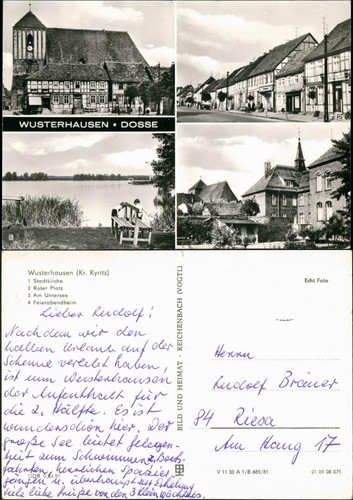 WUSTERHAUSEN • DOSSE
Wusterhausen (Kr. Kyritz)
1 Stadtkirche
2 Roter Platz
3 Am Untersee
4 Feierabendheim
Lieber Rudolf!
Nachdem wir den
halben Urlaub auf der
Scheune verlebt haben,
ist nun Wusterhausen
der Aufenthalt für
die 2. Hälfte. Es ist
wunderschön hier. Der
große See bietet Gelegen-
heit zum Schwimmen, Boots-
fahrten, herrlichen Spazier-
gängen u. überhaupt zur Erholung
Viele liebe Grüße von den 3
BILD UND HEIMAT · REICHENBACH (VOGTL)
Echt Foto
Herrn
Rudolf
84 Riesa
Am Hang 17
V 11 50 A 1/B 683/81
01 04 08 071